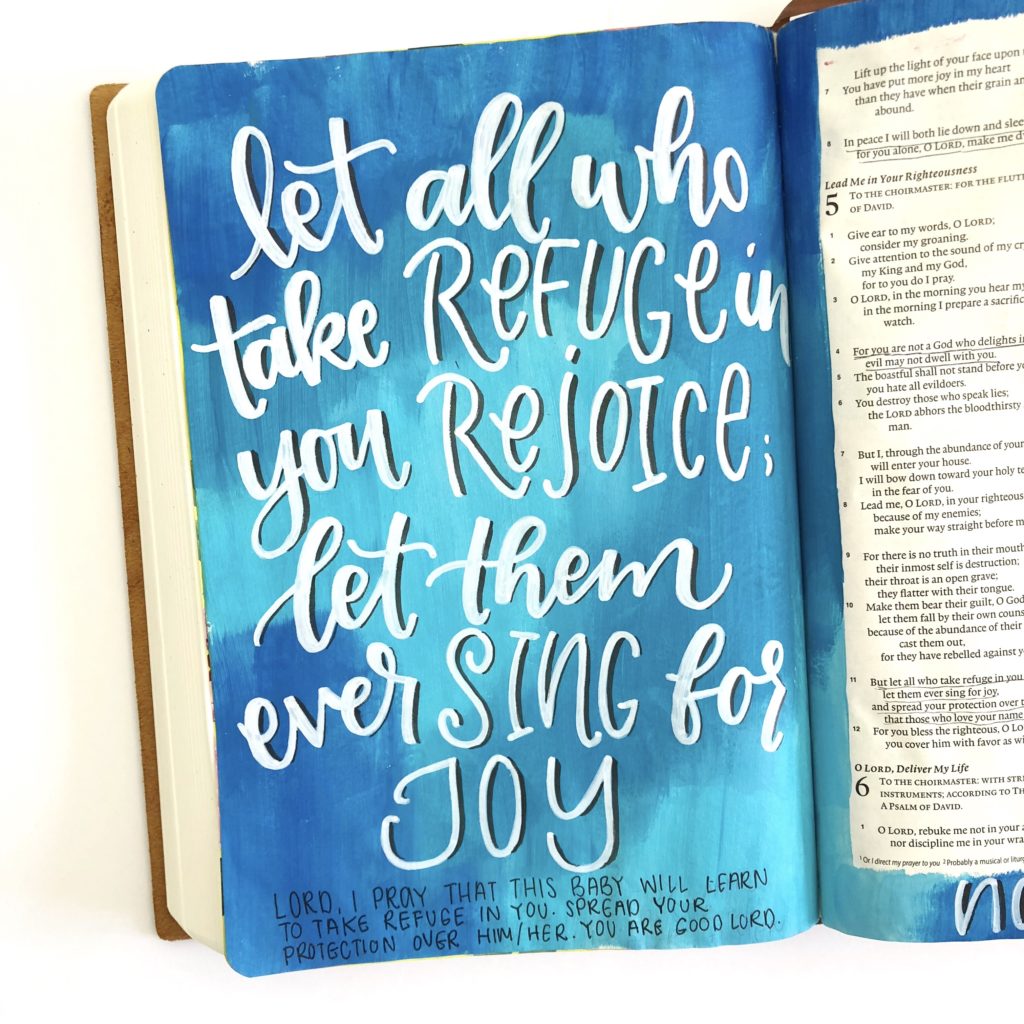 let all who
take REFUGE in
you REJOICE;
let them
ever SING for
JOY
LORD, I PRAY THAT THIS BABY WILL LEARN
TO TAKE REFUGE IN YOU. SPREAD YOUR
PROTECTION OVER HIM/HER. YOU ARE GOOD LORD.
Lift up the light of your face upon
7 You have put more joy in my heart
than they have when their grain
abound.
8 In peace I will both lie down and
for you alone, O LORD, make me
Lead Me in Your Righteousness
5 TO THE CHOIRMASTER: FOR THE
OF DAVID.
1 Give ear to my words, O LORD;
consider my groaning.
2 Give attention to the sound of my
my King and my God,
for to you do I pray.
3 O LORD, in the morning you hear my
in the morning I prepare a
watch.
4 For you are not a God who delights
evil may not dwell with you.
5 The boastful shall not stand before
you hate all evildoers.
6 You destroy those who speak lies;
the LORD abhors the bloodthirsty
man.
7 But I, through the abundance of your
will enter your house.
I will bow down toward your holy
in the fear of you.
8 Lead me, O LORD, in your
because of my enemies;
make your way straight before
9 For there is no truth in their
their inmost self is destruction;
their throat is an open grave;
they flatter with their tongue.
10 Make them bear their guilt, O God
let them fall by their own
because of the abundance of their
cast them out,
for they have rebelled against
11 But let all who take refuge in you
let them ever sing for joy,
and spread your protection over
that those who love your name
12 For you bless the righteous, O
you cover him with favor as
O LORD, Deliver My Life
6 TO THE CHOIRMASTER: WITH
INSTRUMENTS; ACCORDING TO
A PSALM OF DAVID.
1 O LORD, rebuke me not in your
nor discipline me in your
1 Or I direct my prayer to you 2 Probably a musical or